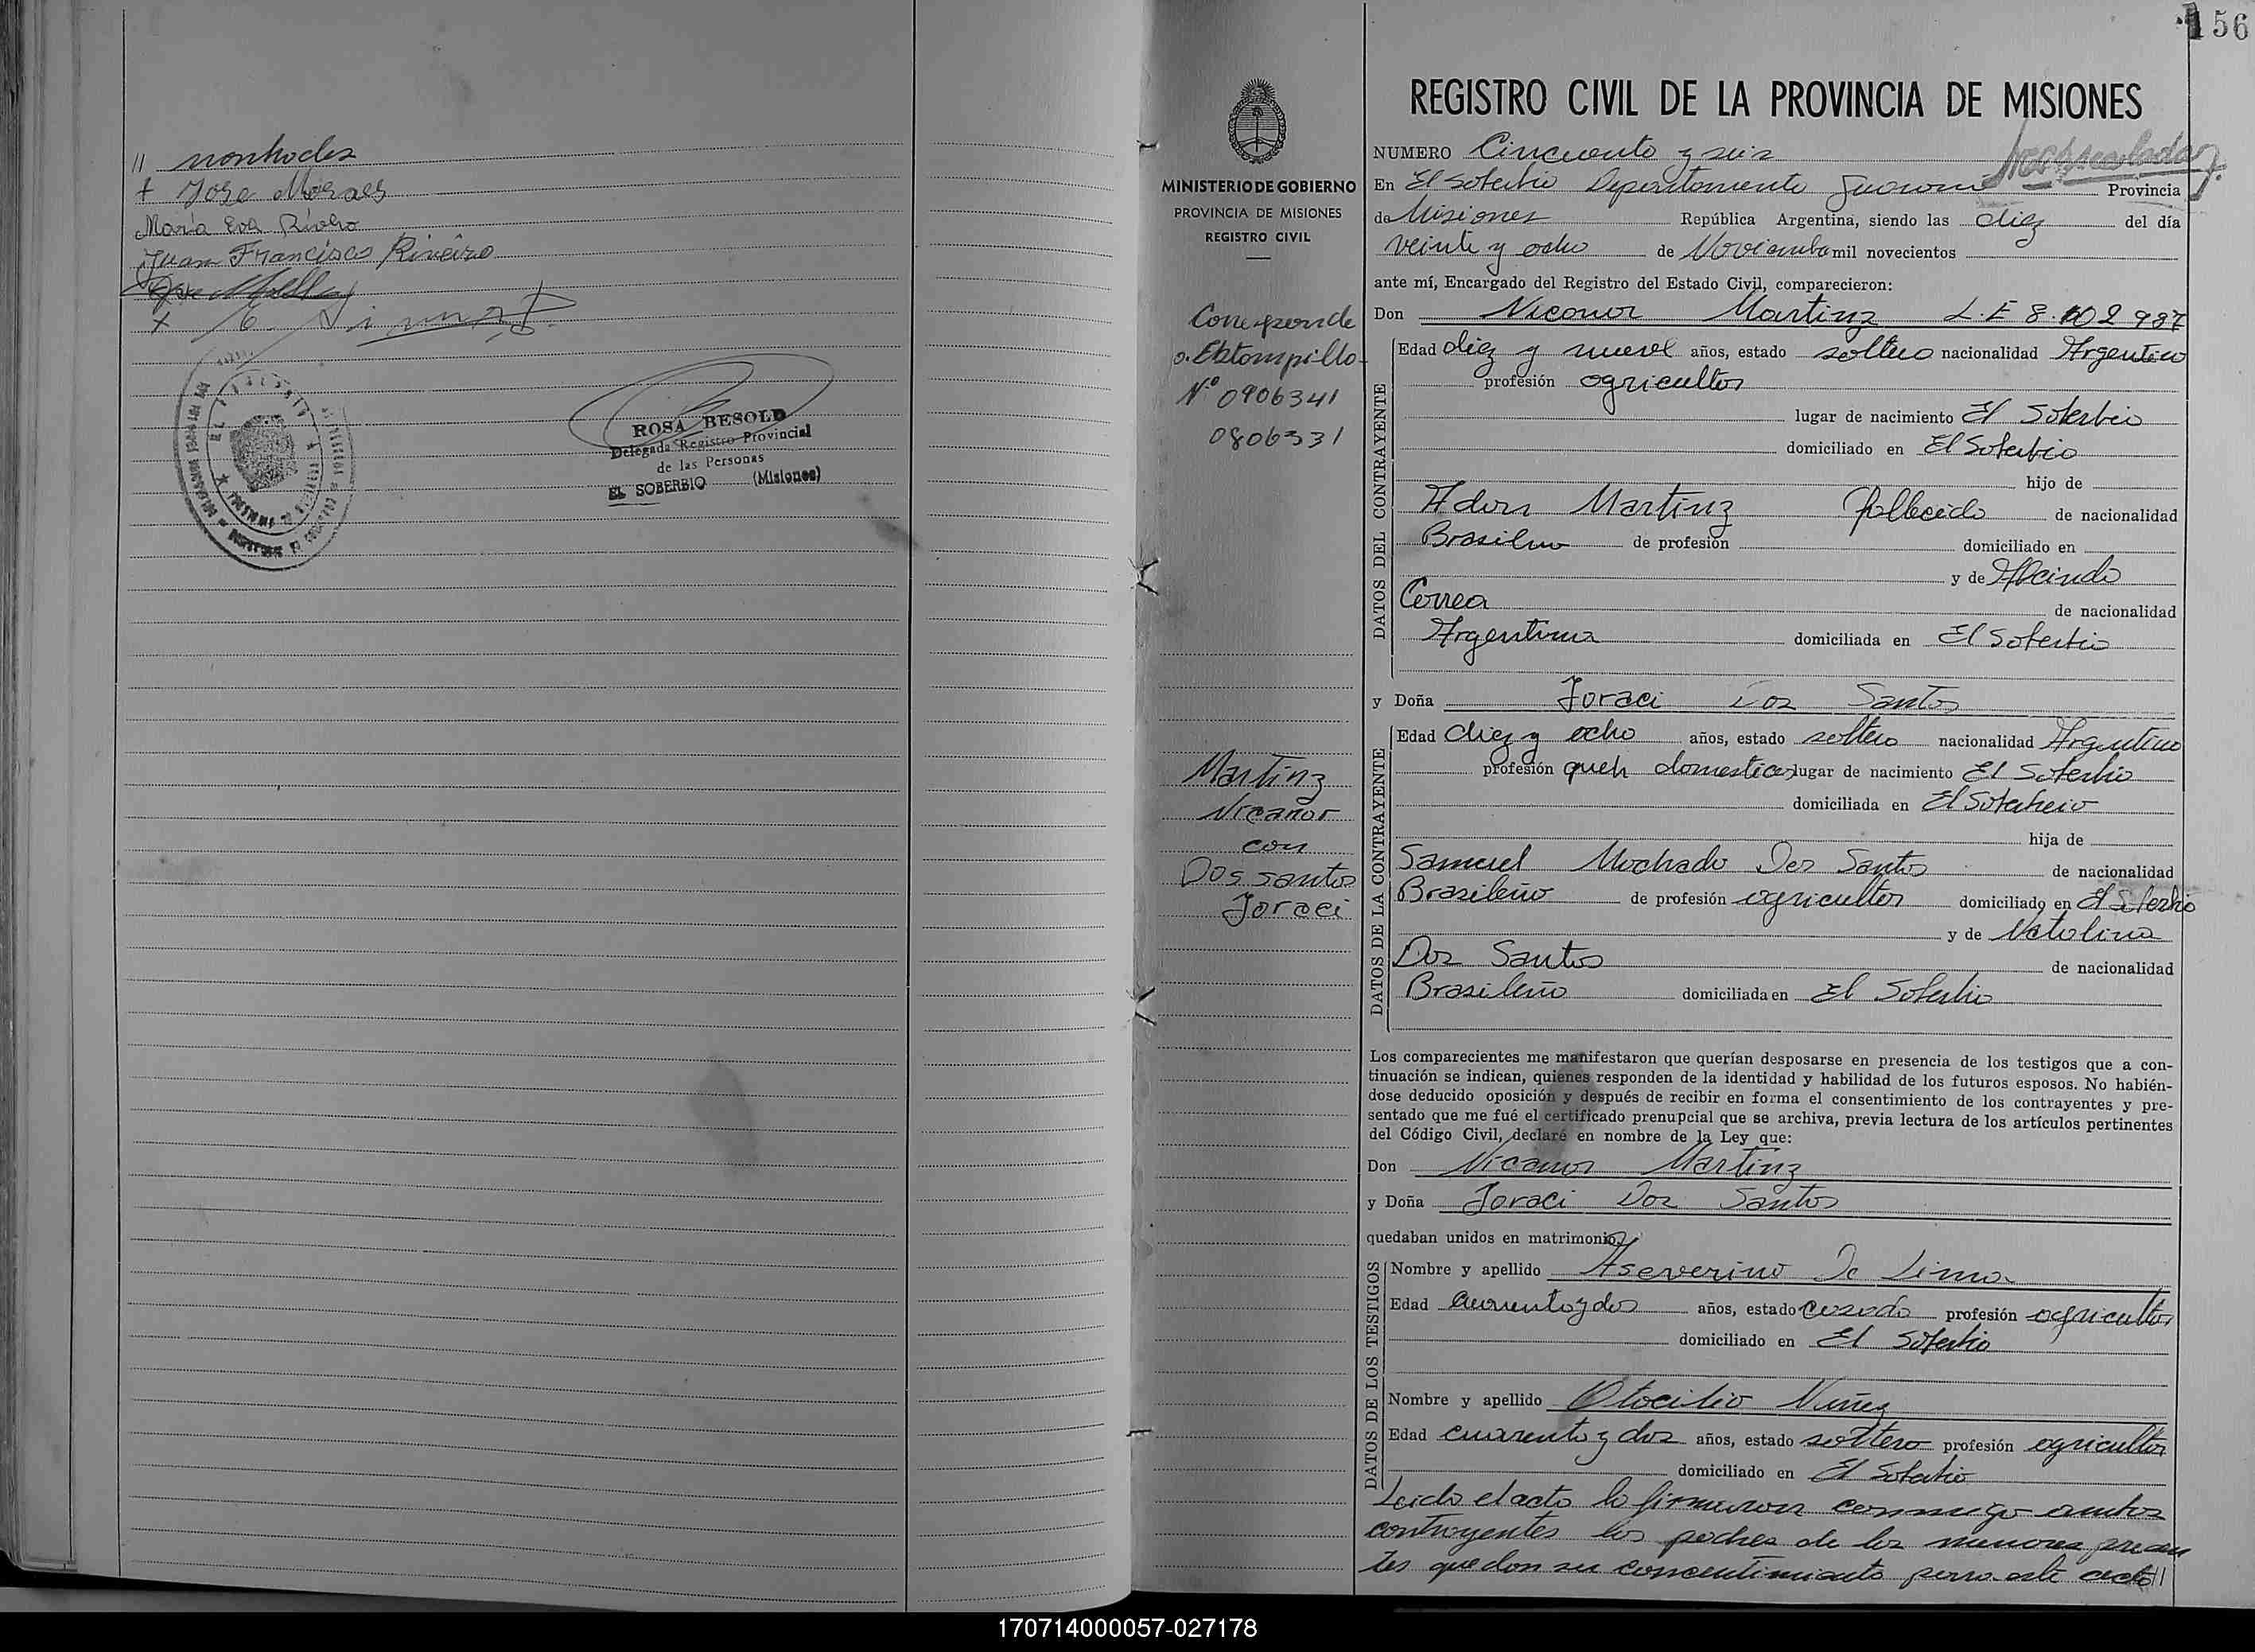 // nombrados
+ Jose Moraes
María Eva Rivero
Juan Francisco Riveiro
ROSA BESOLD
Delegada Registro Provincial
de las Personas
EL SOBERBIO (Misiones)
156
MINISTERIO DE GOBIERNO
PROVINCIA DE MISIONES
REGISTRO CIVIL
Corresponde
a. Estampilla
N.º 0906341
0806331
Martinz
Nicanor
con
Dos santos
Joraci
REGISTRO CIVIL DE LA PROVINCIA DE MISIONES
NUMERO Cincuenta y seis
En El Soberbio Departamento Guarani Provincia
de Misiones República Argentina, siendo las diez del día
veinte y ocho de Noviembre mil novecientos
ante mí, Encargado del Registro del Estado Civil, comparecieron:
Don Nicanor Martinz L.E 8.102987
DATOS DEL CONTRAYENTE
Edad diez y nueve años, estado soltero nacionalidad Argentino
profesión agricultor
lugar de nacimiento El Soberbio
domiciliado en El Soberbio
hijo de
Martinz fallecido de nacionalidad
Brasilero de profesión domiciliado en
y de Alcinda
Correa de nacionalidad
Argentina domiciliada en El Soberbio
y Doña Joraci Dos Santos
DATOS DE LA CONTRAYENTE
Edad diez y ocho años, estado soltera nacionalidad Argentina
profesión queh domesticos lugar de nacimiento El Soberbio
domiciliada en El Soberbio
hija de
Samuel Machado Dos Santos de nacionalidad
Brasileño de profesión agricultor domiciliado en El Soberbio
y de Natalina
Dos Santos de nacionalidad
Brasileña domiciliada en El Soberbio
Los comparecientes me manifestaron que querían desposarse en presencia de los testigos que a con-
tinuación se indican, quienes responden de la identidad y habilidad de los futuros esposos. No habién-
dose deducido oposición y después de recibir en forma el consentimiento de los contrayentes y pre-
sentado que me fué el certificado prenupcial que se archiva, previa lectura de los artículos pertinentes
del Código Civil, declaré en nombre de la Ley que:
Don Nicanor Martinz
y Doña Joraci Dos Santos
quedaban unidos en matrimonio.
DATOS DE LOS TESTIGOS
Nombre y apellido Aseverino De Lima
Edad cuarenta y dos años, estado casado profesión agricultor
domiciliado en El Soberbio
Nombre y apellido Otocilio Nuñez
Edad cuarenta y dos años, estado soltero profesión agricultor
domiciliado en El Soberbio
Leida el acta la firmaron conmigo ambos
contrayentes los padres de los menores presen
tes que dan su concentimiento para este acto//
170714000057-027178